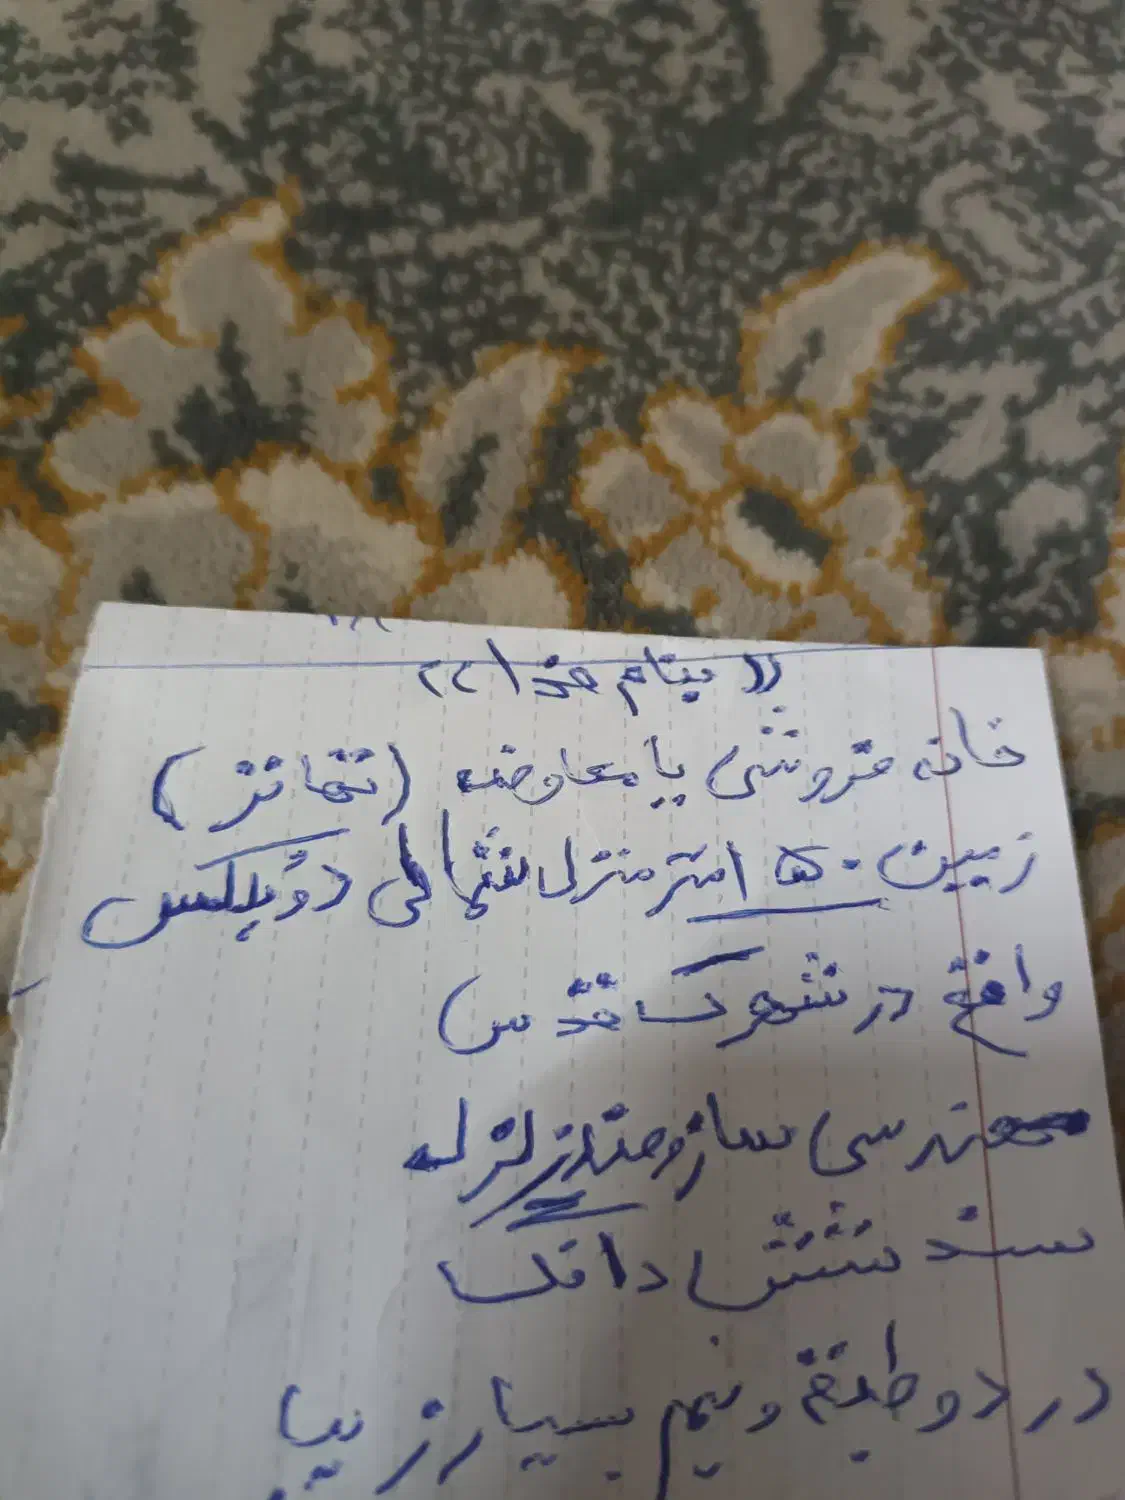 «بنام خدا»
خانه فروشی یا معاوضه (تهاتر)
زمین ۱۵۰ متر منزل شمالی دوبلکس
واقع در شهرک قدس
مهندسی ساز و ضد زلزله
سند شش دانگ
در دو طبقه و نیم بسیار زیبا